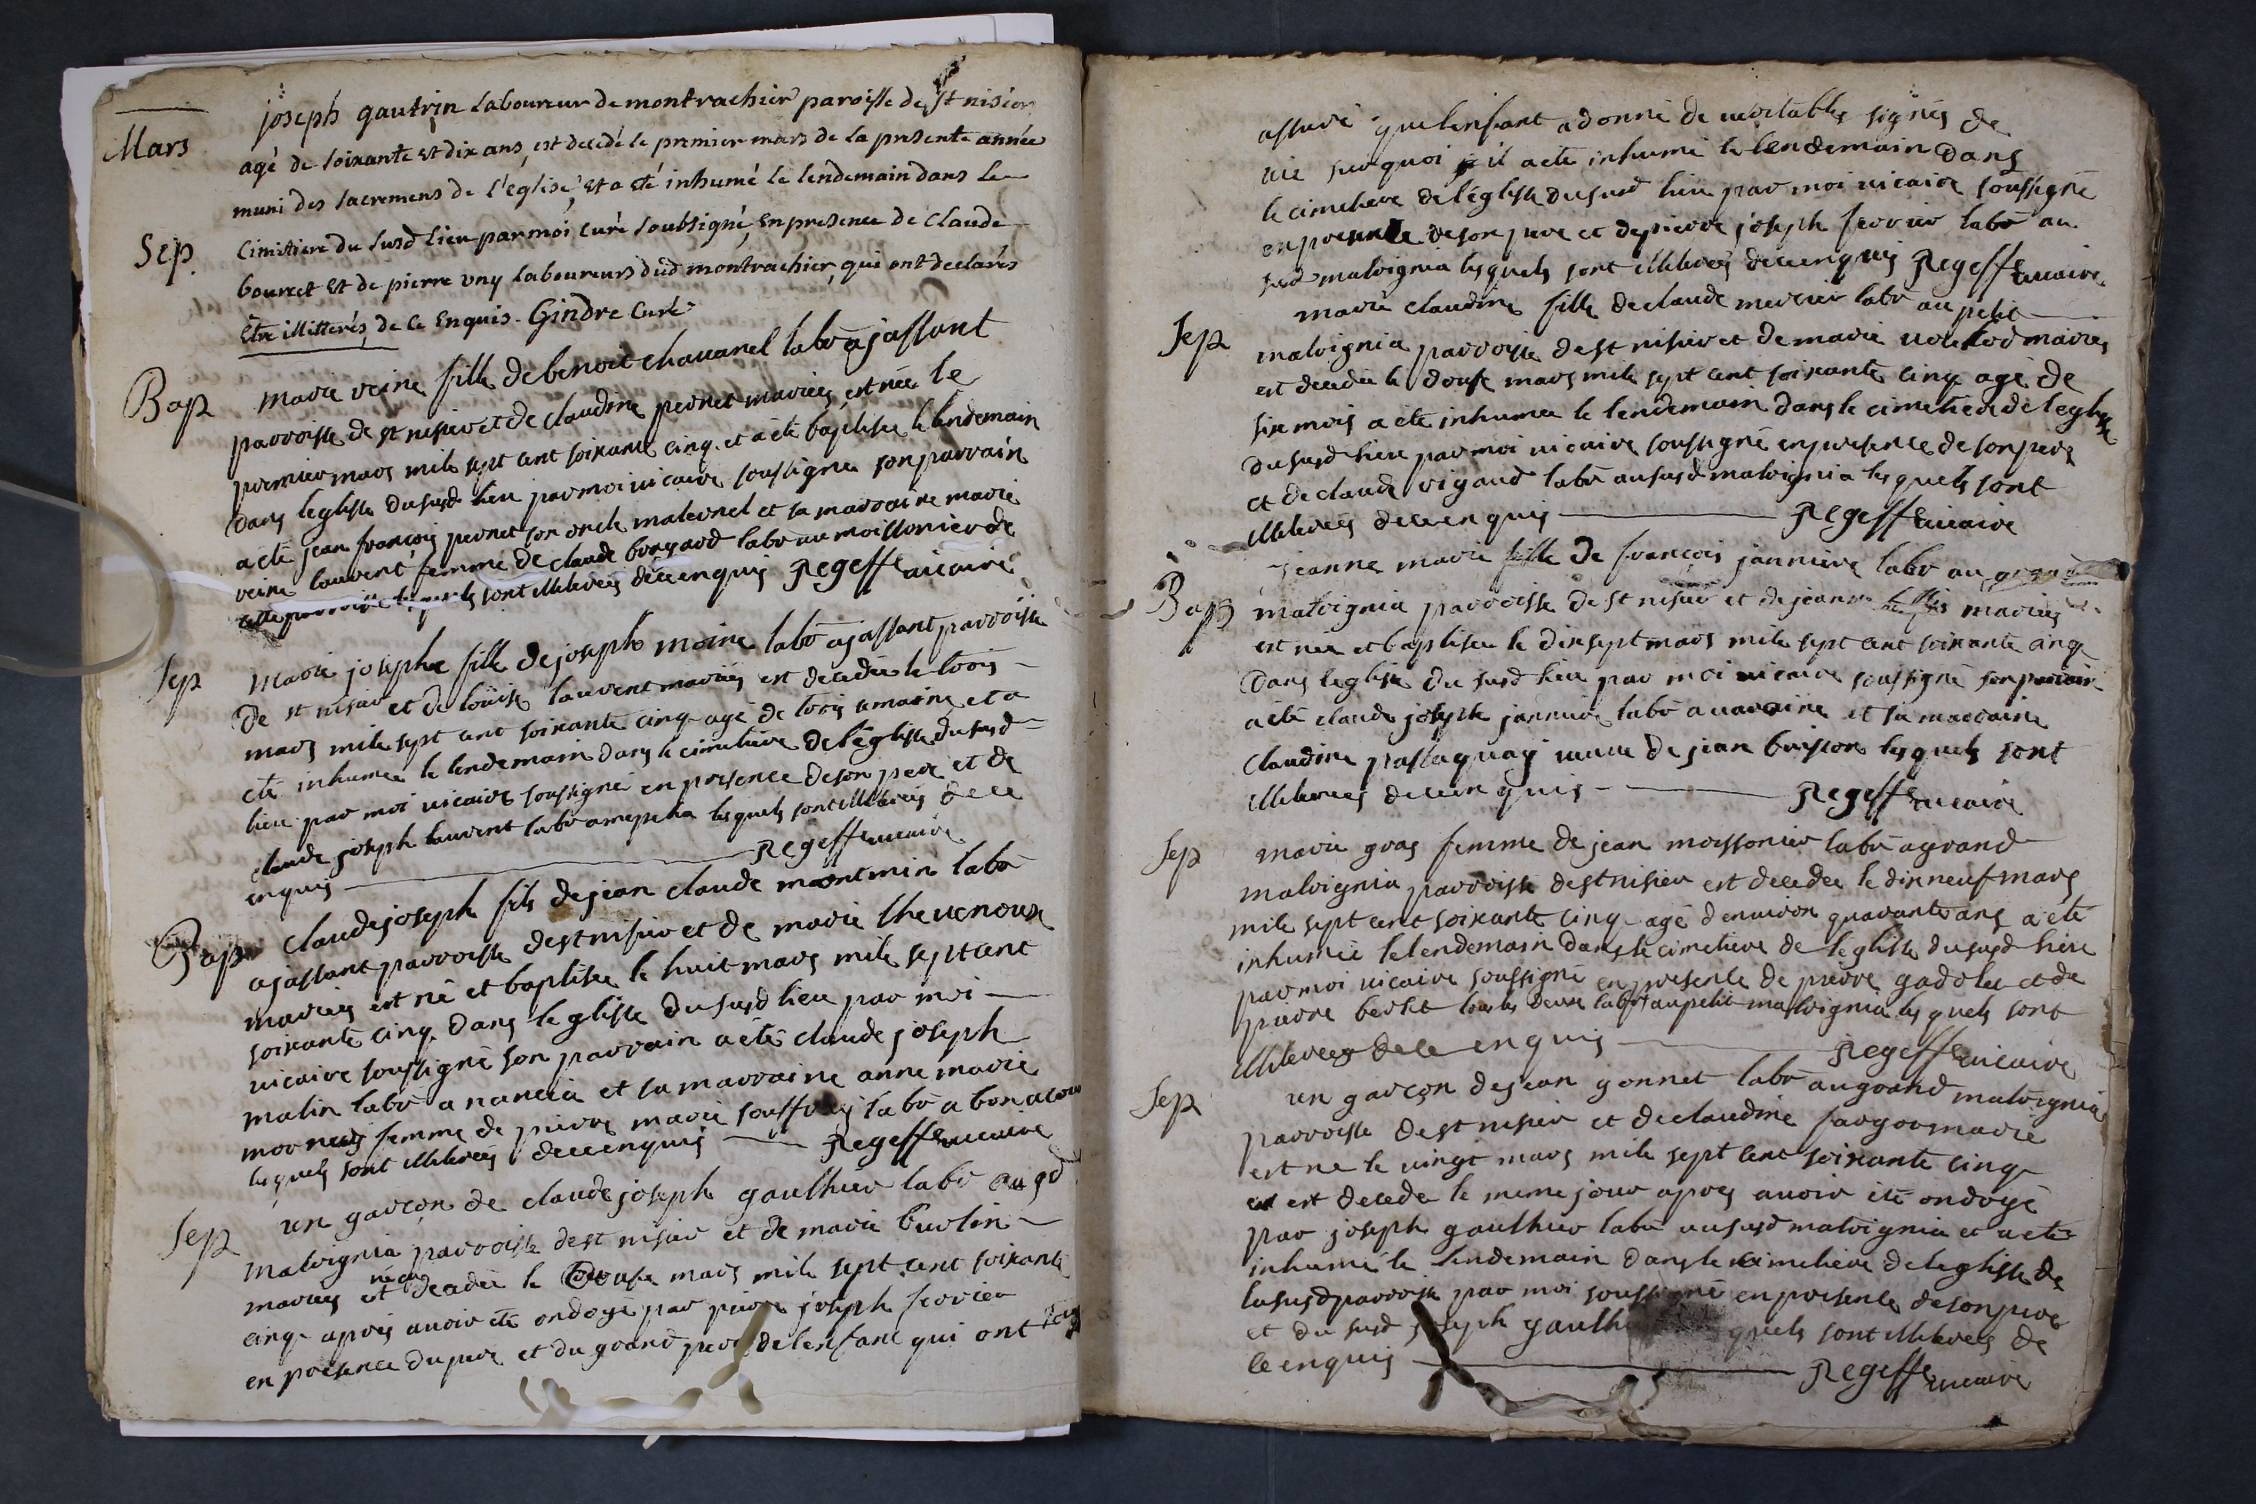 Mars
joseph gautrin laboureur de montrachier paroisse de st nisier
agé de soixante et dix ans, est decedé le premier mars de la presente année
muni des sacremens de l'eglise, et a eté inhumé le lendemain dans le
Sep.
Cimitiere du susd lieu par moi curé soubsigné, en presence de claude
bourcet et de pierre vny laboureurs dud montrachier, qui ont declarés
être illitterés, de ce enquis. Gindre curé
Bap
marie reine fille de benoit chauanel labr a jassant
parroisse de st nisier et de claudine pernet mariés, est née le
premier mars mile sept cent soixante cinq. et a été baptisée le lendemain
dans leglisse du susd lieu par moi uicaire soussigné son parrain
a eté jean françois pernet son oncle maternel et sa marraine marie
reine louvent femme de claude bongard labr au moissonier de
cette parroisse lesquels sont illiterés de ce enquis Regeffe uicaire
Sep
Marie josephe fille de joseph moine labr a jassant parroisse
de st nisier et de loüise lauvent mariés est decedée le trois
mars mile sept cent soixante cinq agé de trois semaine et a
eté inhumée le lendemain dans le cimetiere de l'églisse du susd
lieu par moi uicaire soussigné en presence de son pere et de
claude joseph lauvent labr lesquels sont illiterés de ce
enquis Regeffe uicaire
Bap
Claude joseph fils de jean claude montmin labr
a jassant parroisse de st nisier et de marie theuenoux
mariés est né et baptisée le huit mars mile sept cent
soixante cinq dans le glisse du susd lieu par moi
uicaire soussigné son parrain a été claude joseph
malin labr a nancia et sa marraine anne marie
femme de pierre marie labr a bonacour
lesquels sont illiterés de ce enquis Regeffe uicaire
Sep
un garçon de claude joseph gauthier labr au gd
malvignia parroisse de st nisier et de marie burlin
mariés est né et decedée le Douse mars mile sept cent soixante
cinq apres auoir eté ondoyé par pierre joseph ferrier
en presence du pere et du grand pere de lenfant qui ont
assuré que lenfant a donné de ueritables signes de
uie surquoi il a eté inhumé le lendemain dans
le cimetiere de l'églisse du susd lieu par moi uicaire soussigné
en presence de son pere et de pierre joseph ferrier labr au
susd malvignia lesquels sont illiterés de ce enquis Regeffe uicaire
Sep
marie claudine fille de claude mercier labr au petit
malvignia parroisse de st nisier et de marie mariés
est decedée le douse mars mile sept cent soixante cinq agé de
six mois a eté inhumée le lendemain dans le cimetiere de leglisse
du susd lieu par moi uicaire soussigné en presence de son pere
et de claude rigaud labr au susd malvignia lesquels sont
illiterés de ce enquis Regeffe uicaire
Bap
jeanne marie fille de françois janniere labr au grand
malvignia parroisse de st nisier et de jeanne mariés
est née et baptisée le dix sept mars mile sept cent soixante cinq
dans leglisse du susd lieu par moi uicaire soussigné son parrain
a été claude joseph janniere labr a uarraine et sa marraine
claudine passaquay ueuue de jean buisson lesquels sont
illiterés de ce enquis Regeffe uicaire
Sep
marie gras femme de jean moissonier labr a grand
malvignia parroisse de st nisier est decedée le dix neuf mars
mile sept cent soixante cinq agé denuiron quarante ans a eté
inhumée le lendemain dans le cimetiere de leglisse du susd lieu
par moi uicaire soussigné en presence de pierre gadolet et de
pierre berset tous les deux labrs au petit malvignia lesquels sont
illiterés de ce enquis Regeffe uicaire
Sep
un garçon de jean gonnet labr au grand malvignia
parroisse de st nisier et de claudine fargor marié
est né le uingt mars mile sept cent soixante cinq
et est decedé le meme jour apres auoir été ondoyé
par joseph gauthier labr au susd malvignia et a eté
inhumé le lendemain dans le cimetiere de leglisse de
la susd parroisse par moi soussigné en presence de son pere
et du susd joseph gauthier lesquels sont illiterés de
ce enquis Regeffe uicaire